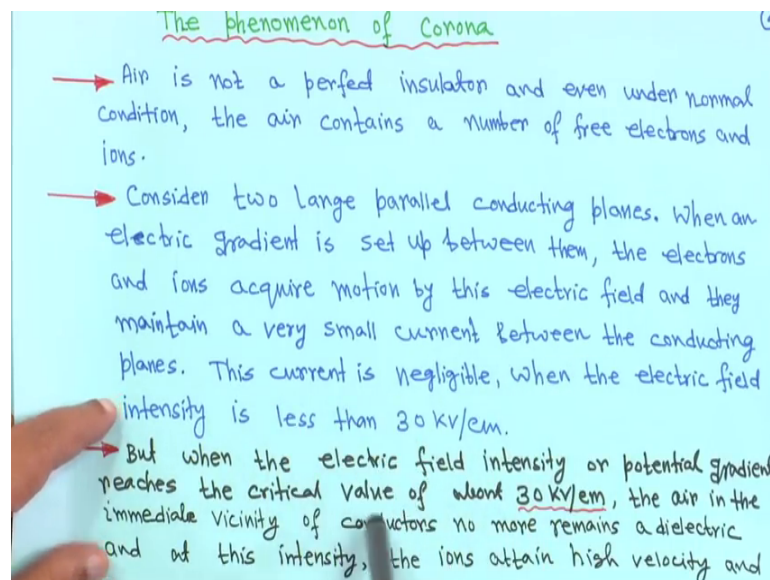 The phenomenon of Corona
Air is not a perfect insulator and even under normal
condition, the air contains a number of free electrons and
ions.
Consider two large parallel conducting planes. When an
electric gradient is set up between them, the electrons
and ions acquire motion by this electric field and they
maintain a very small current between the conducting
planes. This current is negligible, when the electric field
intensity is less than 30 kV/cm.
But when the electric field intensity or potential gradient
reaches the critical value of about 30 kV/cm, the air in the
immediate vicinity of conductors no more remains a dielectric
and at this intensity, the ions attain high velocity and